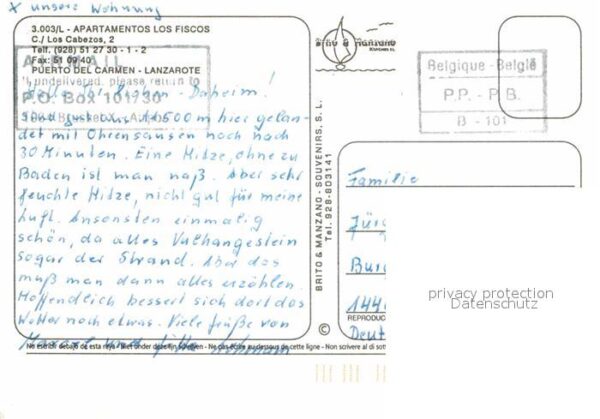 x unsere Wohnung
3.003/L - APARTAMENTOS LOS FISCOS
C./ Los Cabezos, 2
Telf. (928) 51 27 30 - 1 - 2
Fax: 51 09 40
PUERTO DEL CARMEN - LANZAROTE
If undelivered, please return to
P.O. Box 101730
Daheim!
Sind gut aus 11500 m hier gelan-
det mit Ohrensausen noch nach
30 Minuten. Eine Hitze, ohne zu
Baden ist man naß. Aber sehr
feuchte Hitze, nicht gut für meine
Luft. Ansonsten einmalig
schön, da alles Vulkangestein
sogar der Strand. Aber das
muß man dann alles erzählen.
Hoffentlich bessert sich dort das
Wetter noch etwas. Viele Grüße von
und
No escribir debajo de esta raya - Niet onder deze lijn schrijven - Ne pas écrire au-dessous de cette ligne - Non scrivere al di sott
BRITO & MANZANO - SOUVENIRS, S. L.
Tel. 928-803141
©
Brito & Manzano
SOUVENIRS, S.L.
Belgique - België
P.P. - P.B.
B - 101
Familie
Jürg
Burg
144
REPRODUC
Deut
privacy protection
Datenschutz